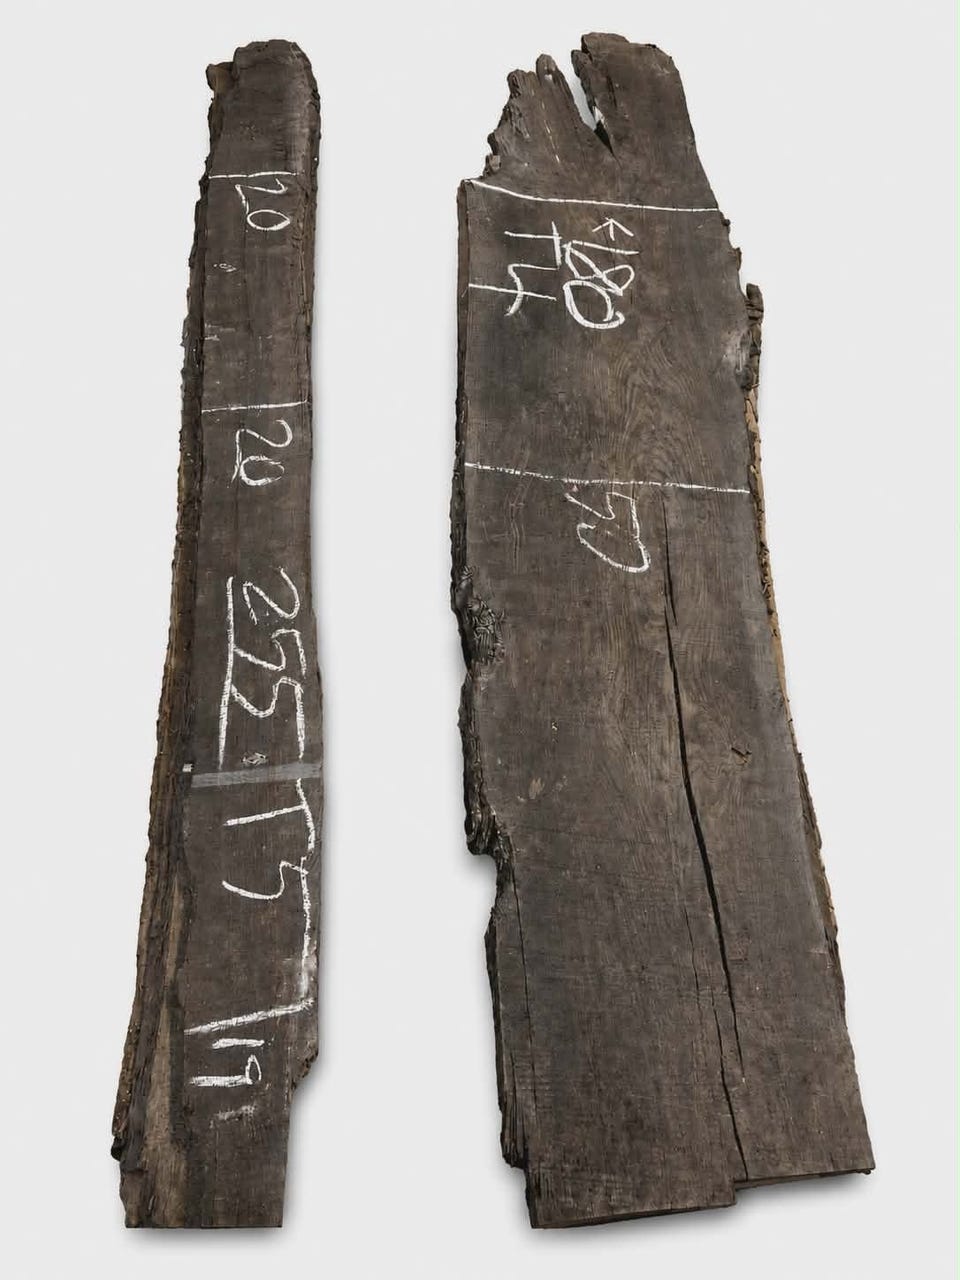 20
20
255
T5
19
←180
T4
50